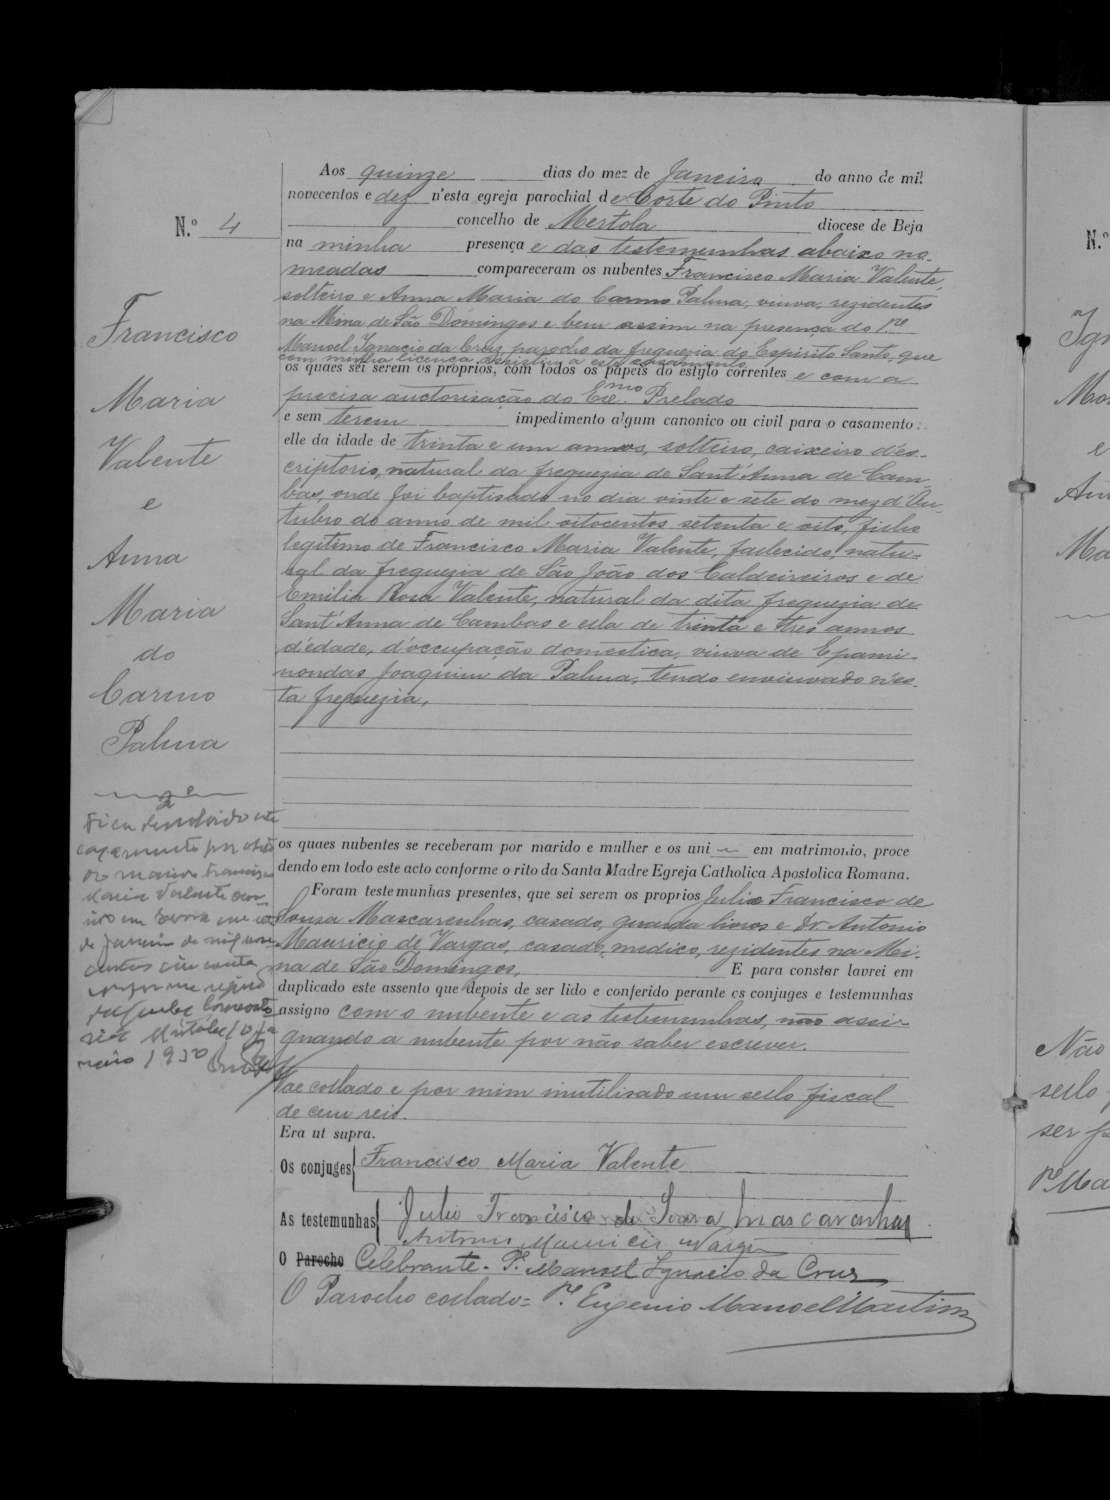 Aos quinze dias do mez de Janeiro do anno de mil
novecentos e dez n'esta egreja parochial de Corte do Pinto
concelho de Mertola diocese de Beja
N.º 4
na minha presença e das testemunhas abaixo no-
meadas compareceram os nubentes Francisco Maria Valente,
solteiro e Anna Maria do Carmo Palma, viuva, rezidentes
na Mina de São Domingos e bem assim na presença do Pe.
Manoel Ignacio da Cruz, parocho da freguezia do Espirito Santo, que
com minha licença assistiu a este casamento
os quaes sei serem os proprios, com todos os papeis do estylo correntes e com a
precisa auctorisação do Exmo. Prelado
e sem terem impedimento algum canonico ou civil para o casamento:
elle da idade de trinta e um annos, solteiro, caixeiro d'es-
criptorio, natural da freguezia de Sant'Anna de Cam-
bas, onde foi baptisado no dia vinte e sete do mez d'Ou-
tubro do anno de mil oitocentos setenta e oito, filho
legitimo de Francisco Maria Valente, fallecido, natu-
ral da freguezia de São João dos Caldeireiros e de
Emilia Rosa Valente, natural da dita freguezia de
Sant'Anna de Cambas e ella de trinta e tres annos
d'edade, d'occupação domestica, viuva de Epami-
nondas Joaquim da Palma, tendo enviuvado n'es-
ta freguezia,
Francisco
Maria
Valente
e
Anna
Maria
do
Carmo
Palma
Fica dissolvido este
casamento por obito
do marido Francisco
Maria Valente
de Janeiro de mil nove-
centos cincoenta
conforme
maio 1950
os quaes nubentes se receberam por marido e mulher e os uni em matrimonio, proce
dendo em todo este acto conforme o rito da Santa Madre Egreja Catholica Apostolica Romana.
Foram testemunhas presentes, que sei serem os proprios Julio Francisco de
Sousa Mascarenhas, casado, guarda livros e Dr. Antonio
Mauricio de Vargas, casado, medico, rezidentes na Mi-
na de São Domingos, E para constar lavrei em
duplicado este assento que depois de ser lido e conferido perante os conjuges e testemunhas
assigno com o nubente e as testemunhas, não assi-
gnando a nubente por não saber escrever.
Vae collado e por mim inutilisado um sello fiscal
de cem reis.
Era ut supra.
Os conjuges Francisco Maria Valente
As testemunhas Julio Francisco de Sousa Mascarenhas
Antonio Mauricio Vargas
O Parocho Celebrante - Pe. Manoel Ignacio da Cruz
O Parocho collado = Pe. Eugenio Manoel Martins
N.º
Não
sello
ser